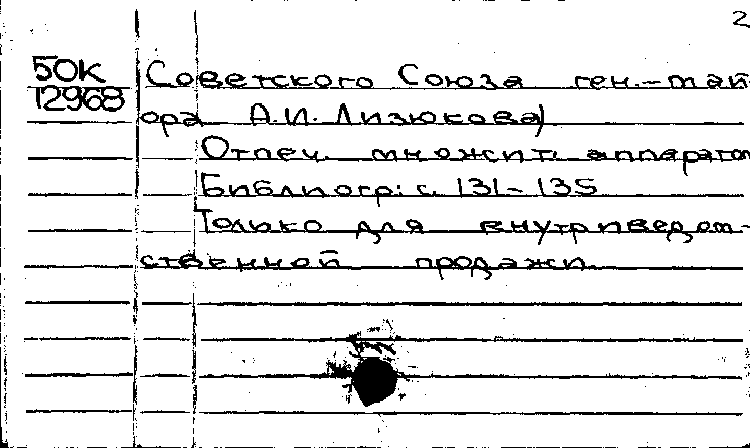 2
50К Советского Союза ген.-май-
12968 ора А.И. Лизюкова)
Отпеч. множит. аппаратом
Библиогр: с. 131-135
Только для внутриведом-
ственной продажи.